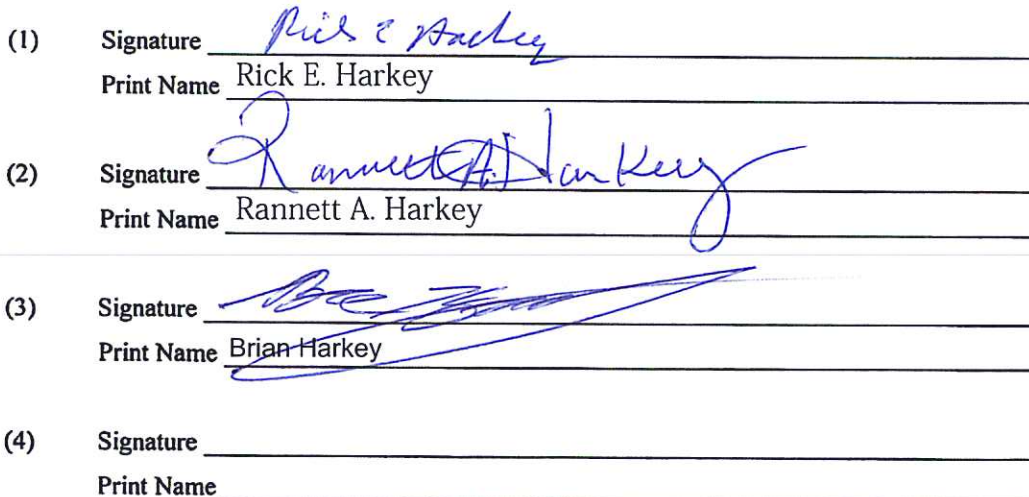 (1) Signature Rick E Harkey
Print Name Rick E. Harkey
(2) Signature Rannett A. Harkey
Print Name Rannett A. Harkey
(3) Signature
Print Name Brian Harkey
(4) Signature
Print Name